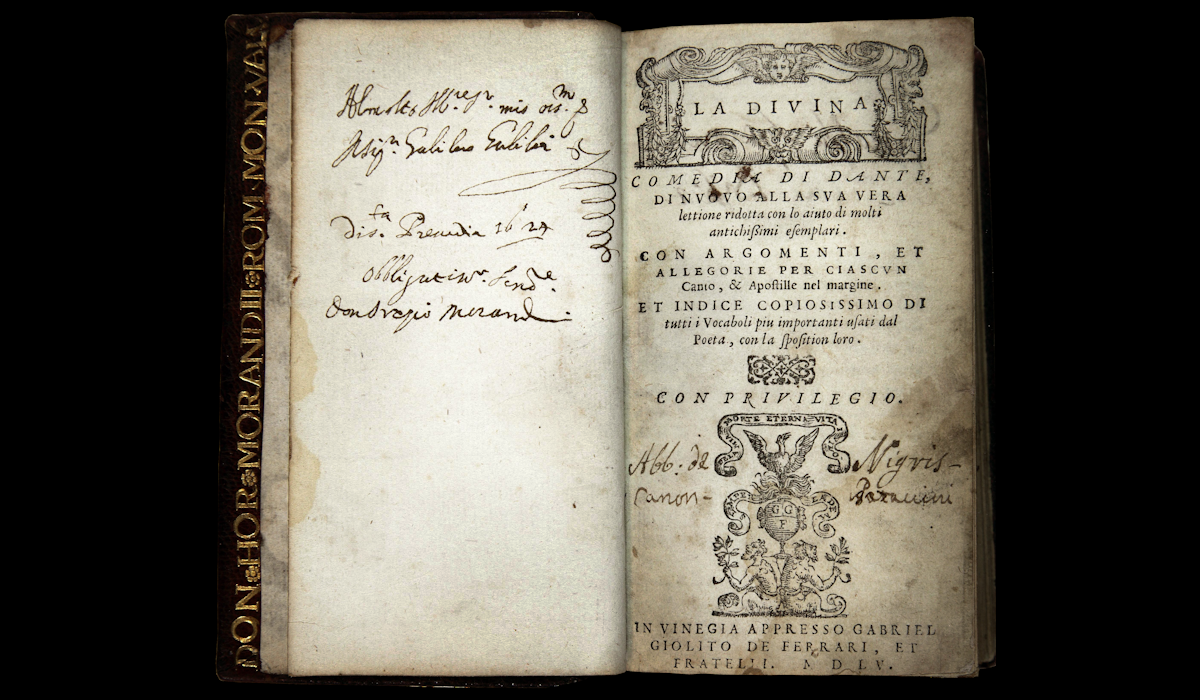 DON HOR MORANDII ROM MON VAL
Galileo Galilei
1624
Don Oratio Morandi.
LA DIVINA
COMEDIA DI DANTE,
DI NVOVO ALLA SVA VERA
lettione ridotta con lo aiuto di molti
antichißimi eſemplari.
CON ARGOMENTI, ET
ALLEGORIE PER CIASCVN
Canto, & Apoſtille nel margine.
ET INDICE COPIOSISSIMO DI
tutti i Vocaboli piu importanti uſati dal
Poeta, con la ſpoſition loro.
CON PRIVILEGIO.
DE LA MIA MORTE ETERNA VITA I VIVO
Abb: de Nigris
Canon- 
SEMPER EADEM
G G
F
IN VINEGIA APPRESSO GABRIEL
GIOLITO DE FERRARI, ET
FRATELLI. M D L V.